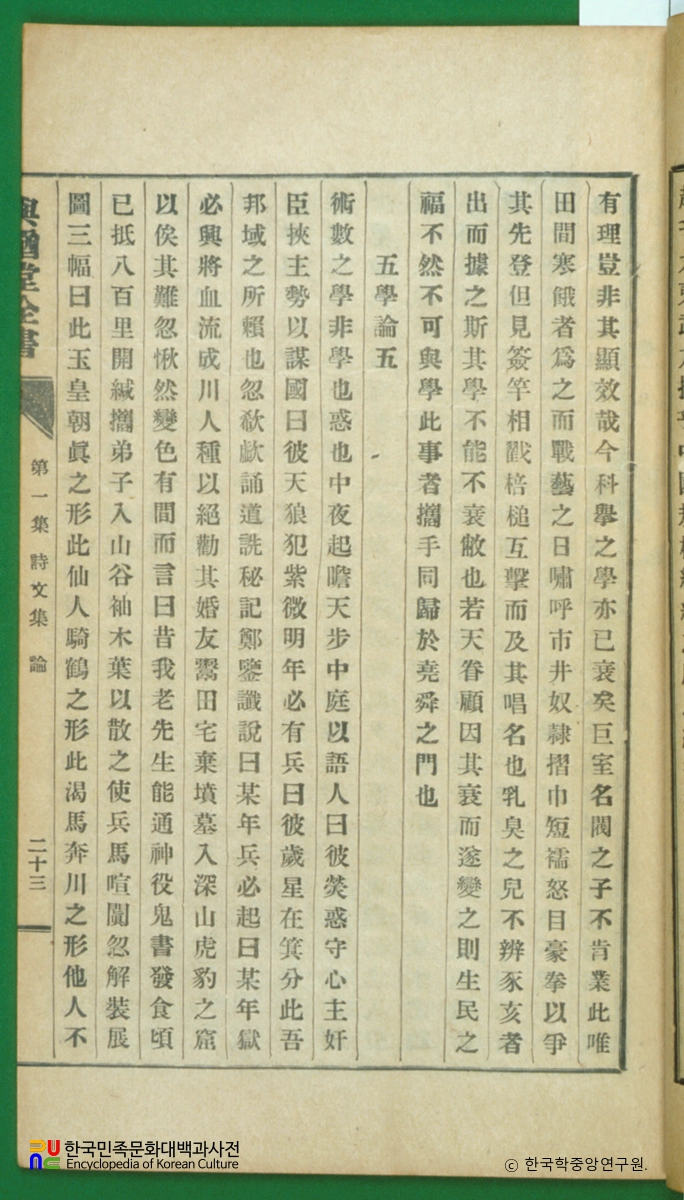 有理豈非其顯效哉今科擧之學亦已衰矣巨室名閥之子不肯業此唯
田間寒餓者爲之而戰藝之日嘯呼市井奴隷摺巾短襦怒目豪拳以爭
其先登但見簽竿相戳棓槌互擊而及其唱名也乳臭之兒不辨豕亥者
出而據之斯其學不能不衰敝也若天眷顧因其衰而遂變之則生民之
福不然不可與學此事者攜手同歸於堯舜之門也
五學論五
術數之學非學也惑也中夜起瞻天步中庭以語人曰彼熒惑守心主奸
臣挾主勢以謀國曰彼天狼犯紫微明年必有兵曰彼歲星在箕分此吾
邦域之所賴也忽欷歔誦道詵秘記鄭鑒讖說曰某年兵必起曰某年獄
必興將血流成川人種以絕勸其婚友鬻田宅棄墳墓入深山虎豹之窟
以俟其難忽愀然變色有間而言曰昔我老先生能通神役鬼書發食頃
已抵八百里開緘攜弟子入山谷袖木葉以散之使兵馬喧闐忽解裝展
圖三幅曰此玉皇朝眞之形此仙人騎鶴之形此渴馬奔川之形他人不
與猶堂全書
第一集 詩文集 論
二十三
한국민족문화대백과사전
Encyclopedia of Korean Culture
ⓒ 한국학중앙연구원.